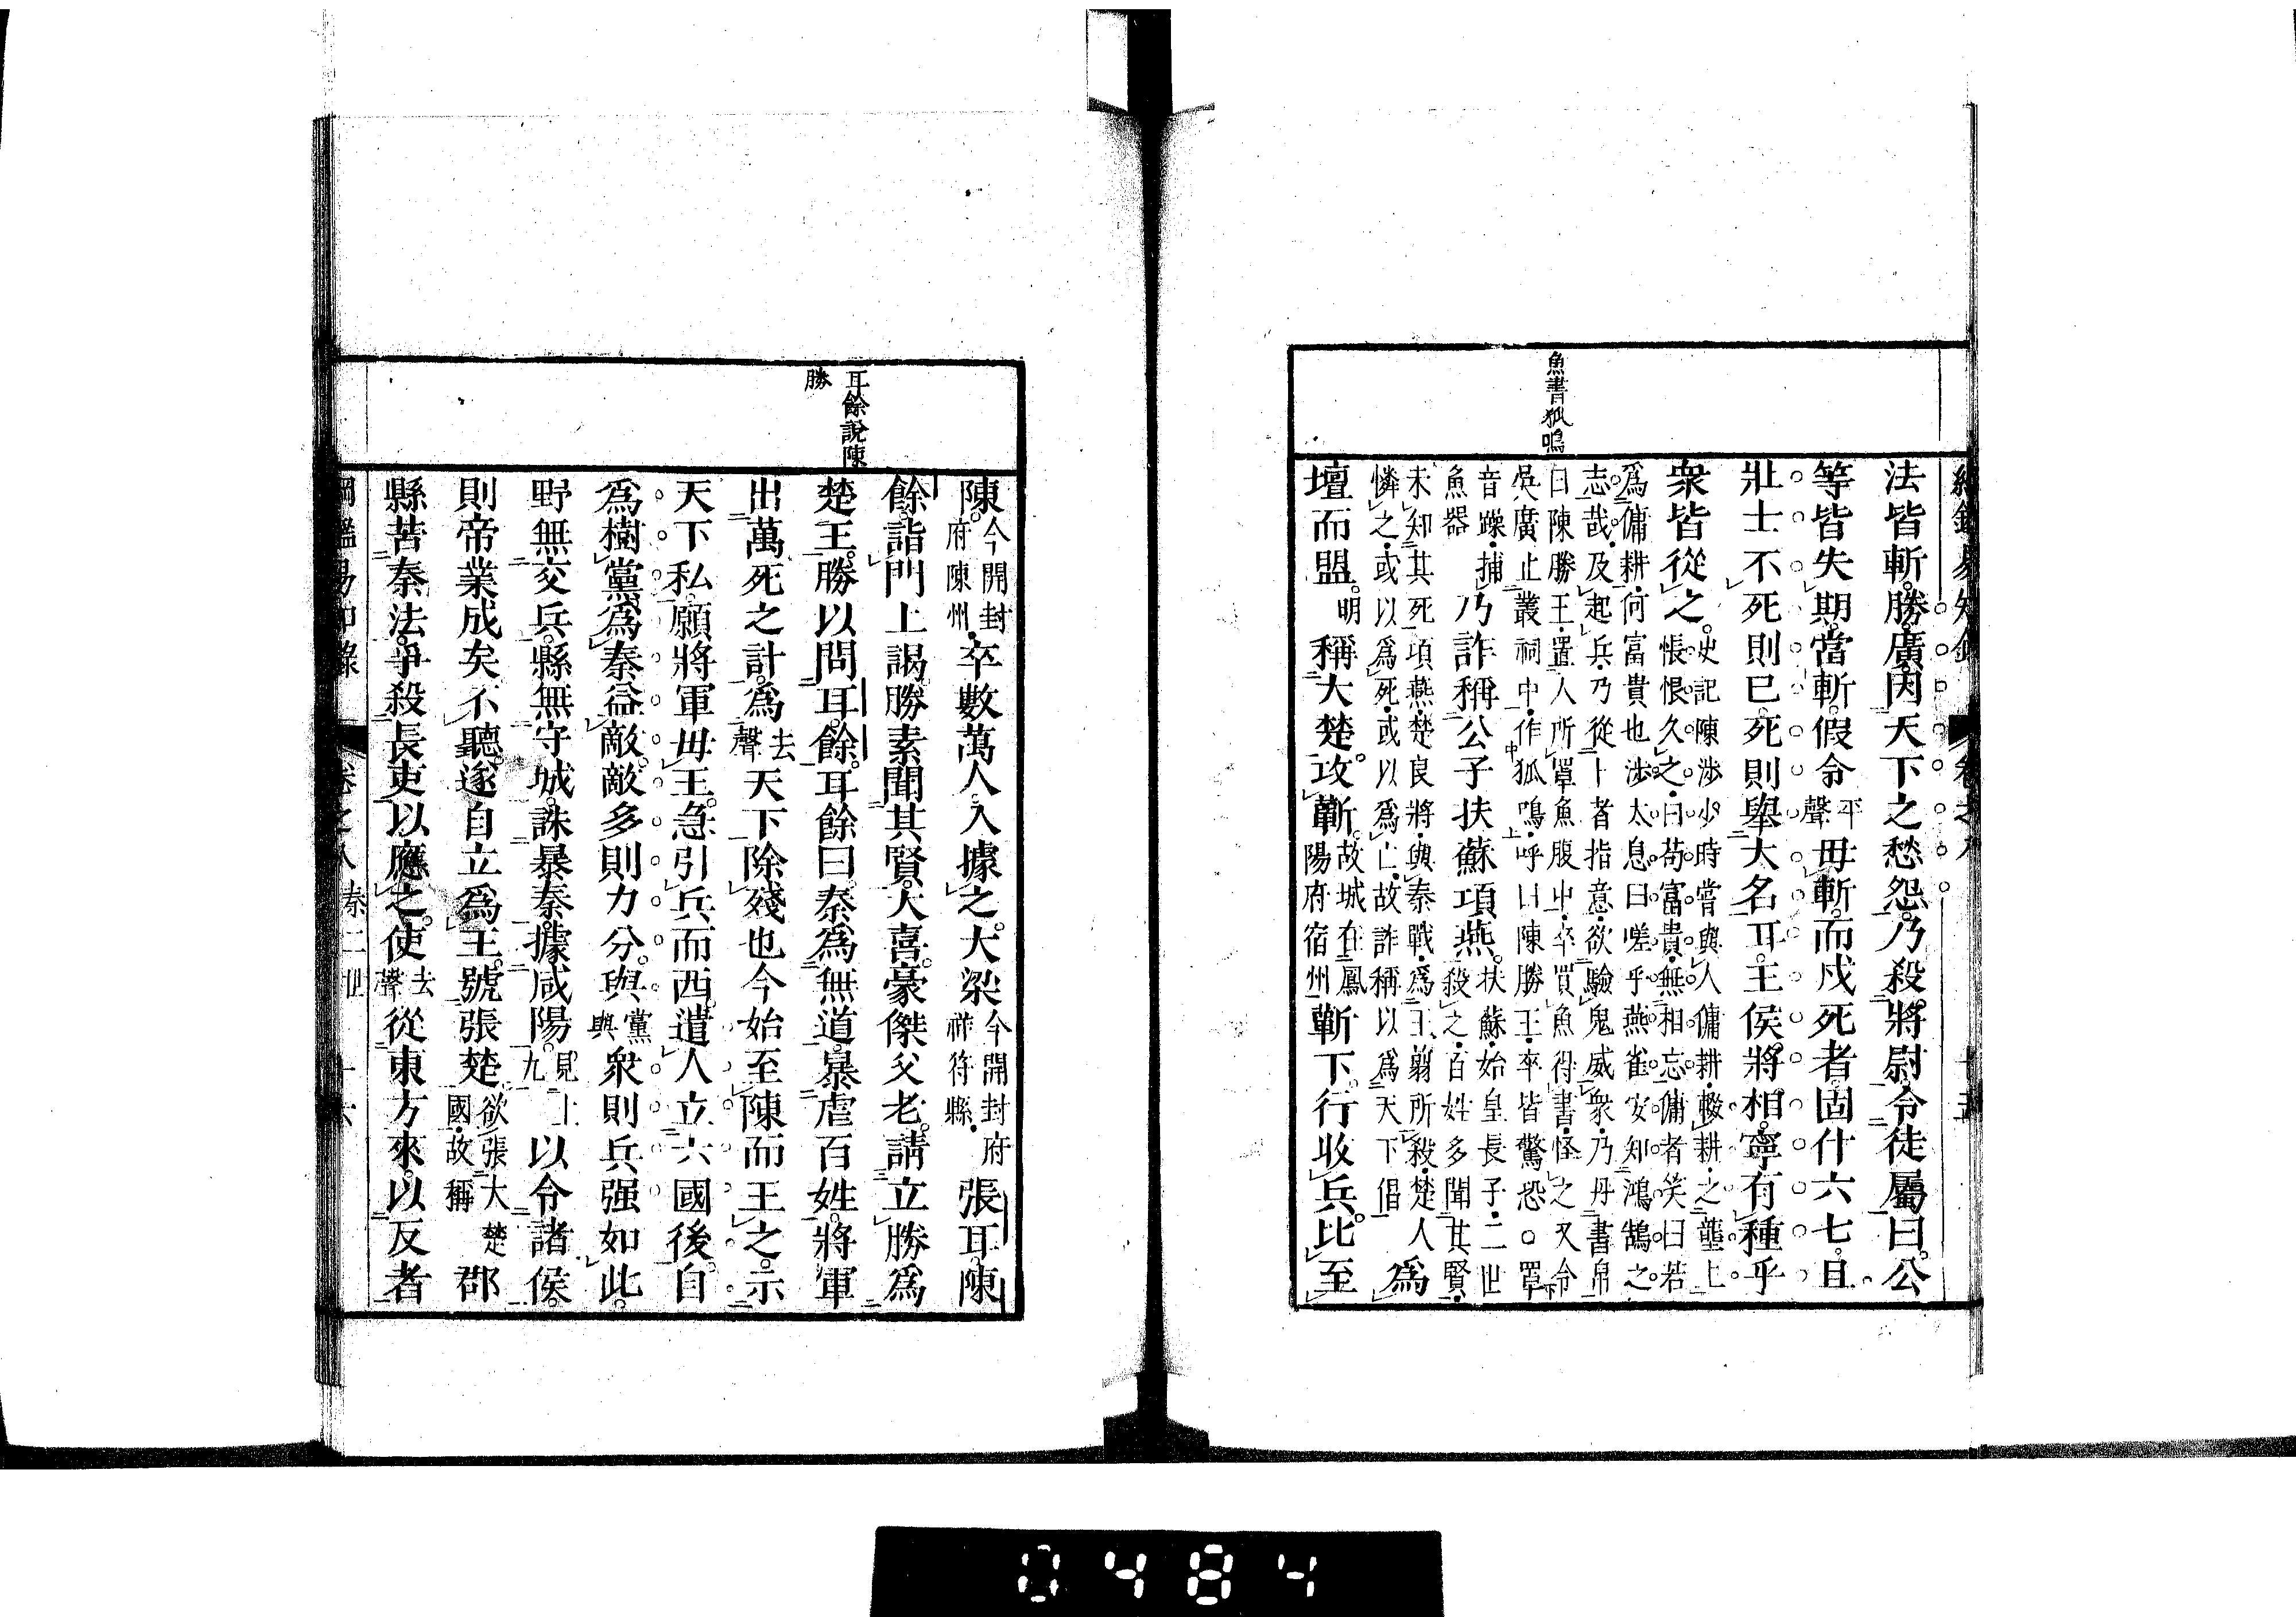 魚書狐鳴
法皆斬勝廣因天下之愁怨乃殺將尉令徒屬曰公
等皆失期當斬假令平聲毋斬而戍死者固什六七且
壯士不死則已死則舉大名耳王侯將相寧有種乎
衆皆從之史記陳涉少時嘗與人傭耕輟耕之壟上悵恨久之曰苟富貴無相忘傭者笑曰若
爲傭耕何富貴也涉太息曰嗟乎燕雀安知鴻鵠之志哉及起兵乃從卜者指意欲驗鬼威衆乃丹書帛
曰陳勝王置人所罩魚腹中卒買魚得書怪之又令吳廣止叢祠中作狐鳴呼曰陳勝王卒皆驚恐○罩
音躁捕魚器乃詐稱公子扶蘇項燕扶蘇始皇長子二世殺之百姓多聞其賢
未知其死項燕楚良將與秦戰爲王翦所殺楚人憐之或以爲死或以爲亡故詐稱以爲天下倡爲
壇而盟明稱大楚攻蘄故城在鳳陽府宿州蘄下行收兵比至
耳餘說陳勝
陳今開封府陳州卒數萬人入據之大梁今開封府祥符縣張耳陳
餘詣門上謁勝素聞其賢大喜豪傑父老請立勝爲
楚王勝以問耳餘耳餘曰秦爲無道暴虐百姓將軍
出萬死之計爲去聲天下除殘也今始至陳而王之示
天下私願將軍毋王急引兵而西遣人立六國後自
爲樹黨爲秦益敵敵多則力分與黨與衆則兵强如此
野無交兵縣無守城誅暴秦據咸陽見上九以令諸侯
則帝業成矣不聽遂自立爲王號張楚欲張大楚國故稱郡
縣苦秦法爭殺長吏以應之使去聲從東方來以反者
綱鑑易知錄 卷之八 秦二世 十六
0484